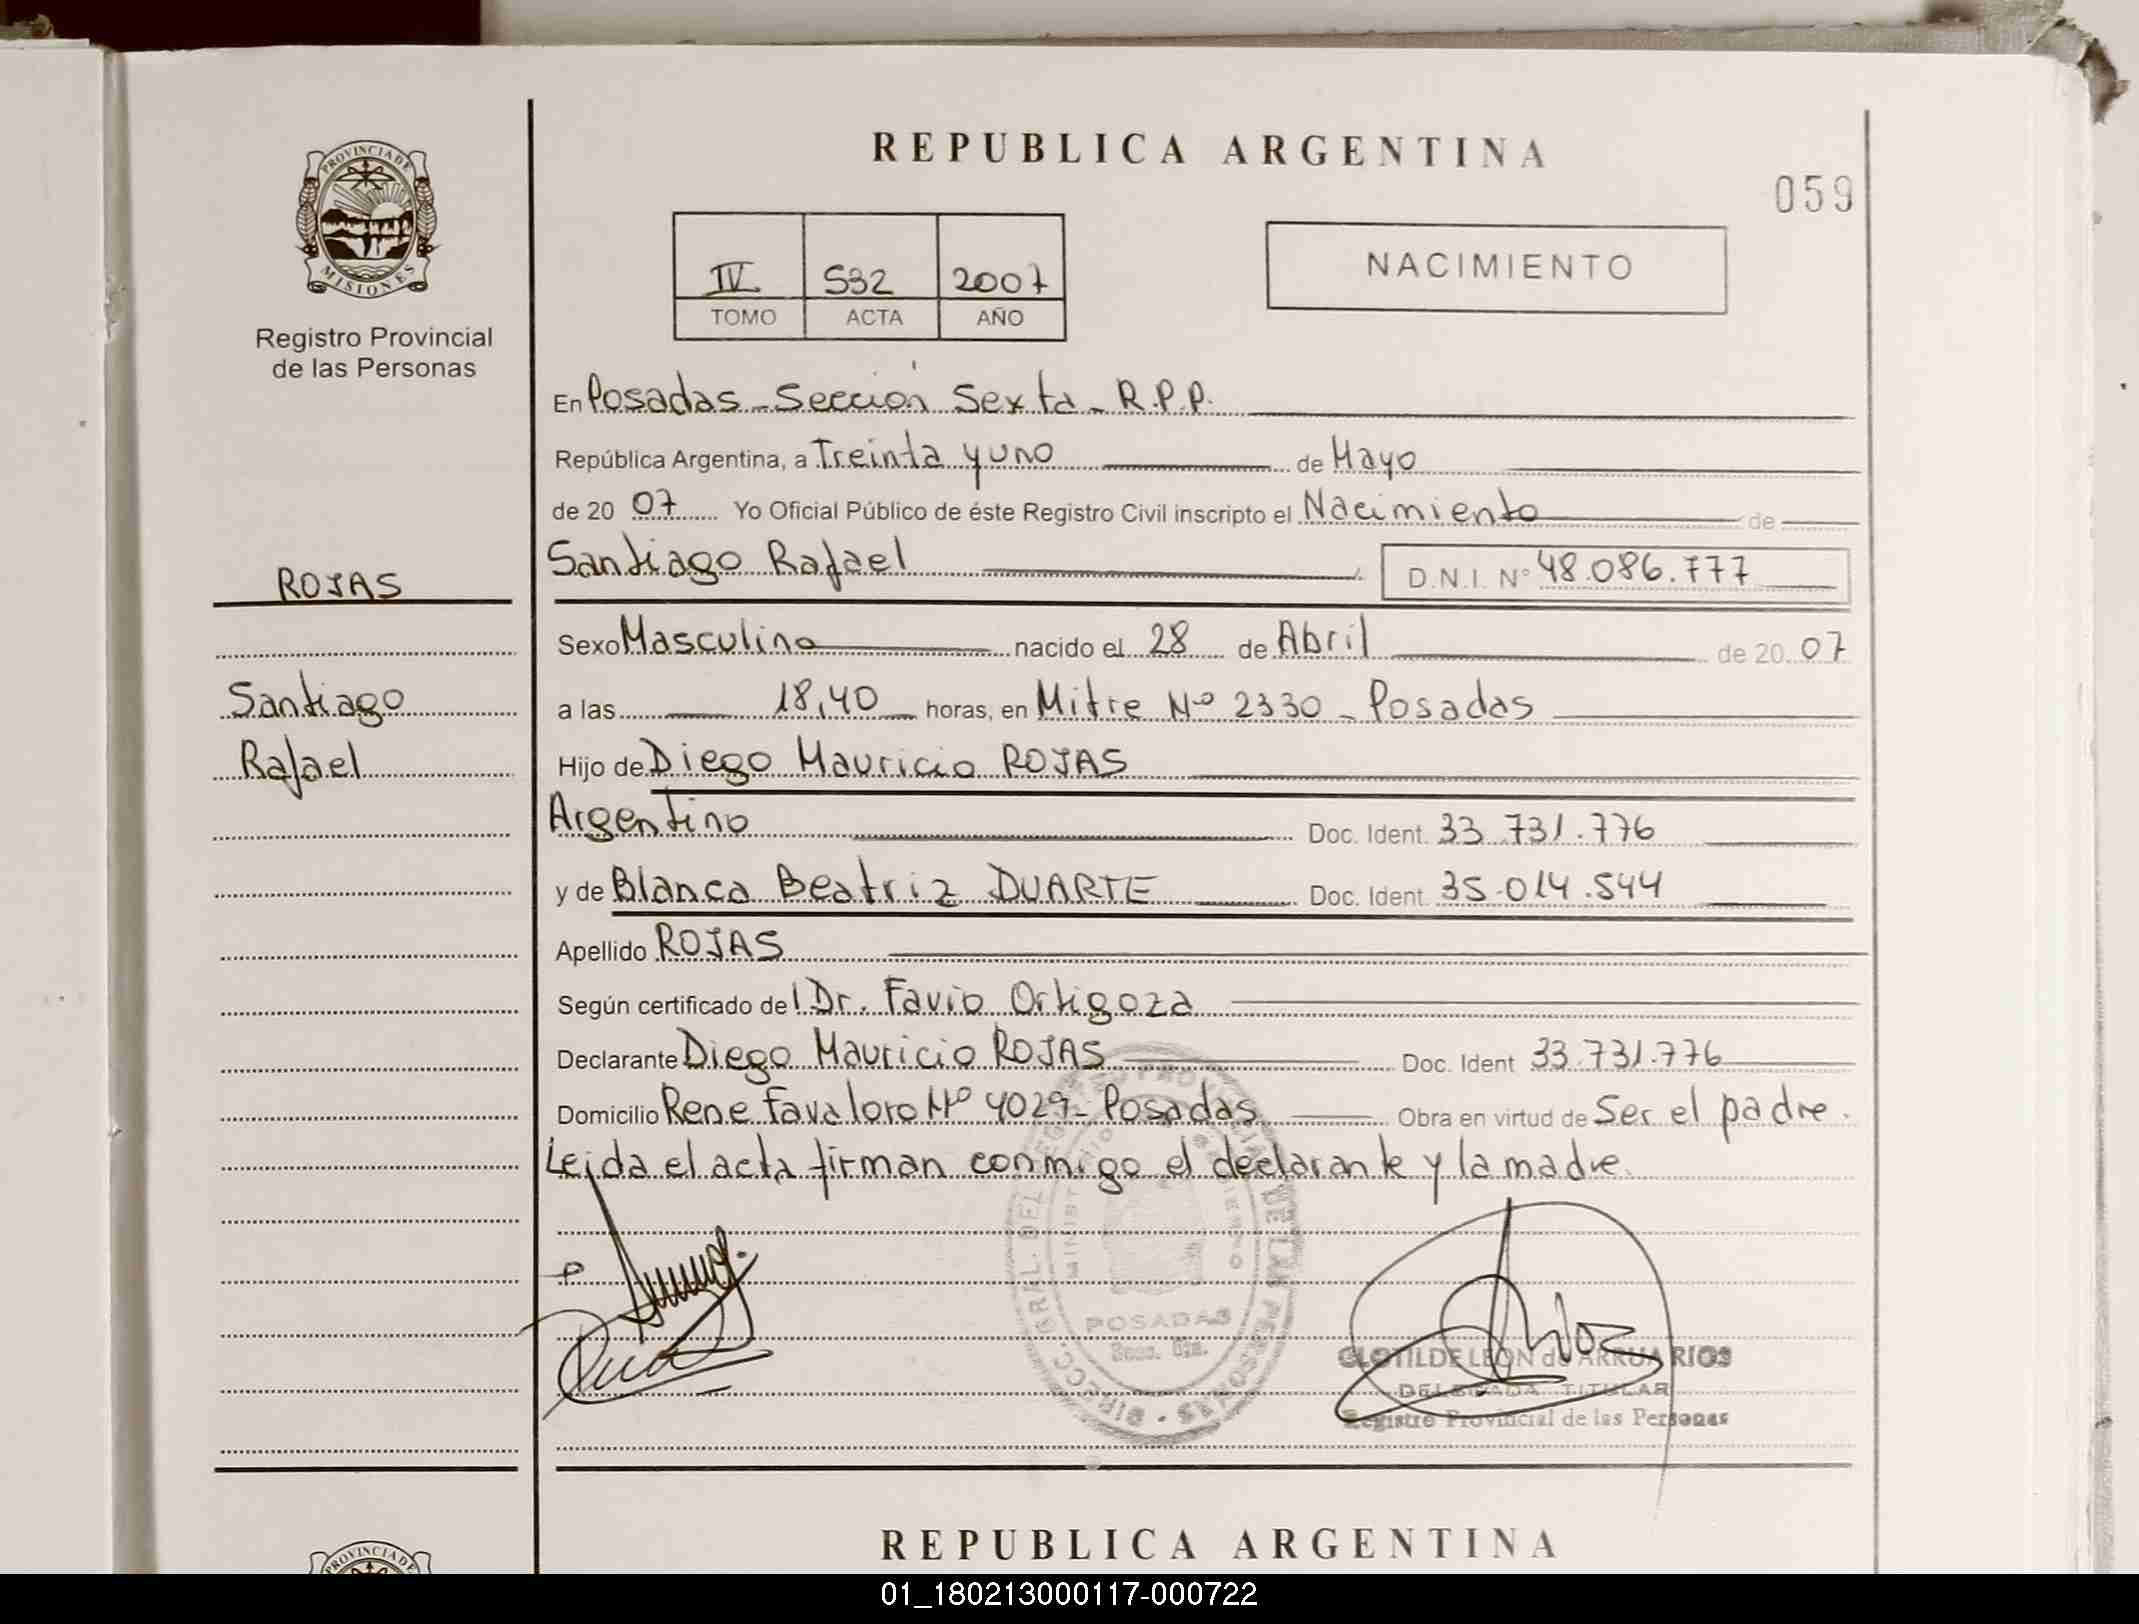 REPUBLICA ARGENTINA
059
PROVINCIA DE
MISIONES
Registro Provincial
de las Personas
IV 532 2007
TOMO ACTA AÑO
NACIMIENTO
En Posadas - Sección Sexta - R.P.P.
República Argentina, a Treinta y uno de Mayo
de 20 07 Yo Oficial Público de éste Registro Civil inscripto el Nacimiento de
Santiago Rafael D.N.I. Nº 48.086.777
ROJAS
Santiago
Rafael
Sexo Masculino nacido el 28 de Abril de 20 07
a las 18,40 horas, en Mitre Nº 2330 - Posadas
Hijo de Diego Mauricio ROJAS
Argentino Doc. Ident. 33.731.776
y de Blanca Beatriz DUARTE Doc. Ident. 35.014.544
Apellido ROJAS
Según certificado de l Dr. Favio Ortigoza
Declarante Diego Mauricio ROJAS Doc. Ident 33.731.776
Domicilio Rene Favaloro Nº 4029 - Posadas Obra en virtud de Ser el padre.
Leida el acta, firman conmigo el declarante y la madre.
DIRECC. GRAL. DEL REGISTRO PROVINCIAL DE LAS PERSONAS
POSADAS
CLOTILDE LEON de ARRUA RIOS
DELEGADA TITULAR
Registro Provincial de las Personas
REPUBLICA ARGENTINA
PROVINCIA DE
01_180213000117-000722